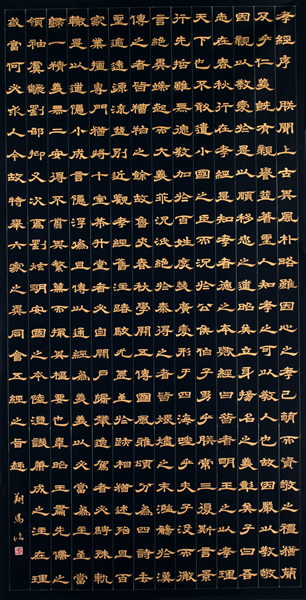 孝經序朕聞上古其風朴略雖因心之孝已萌而資敬之禮猶簡
及乎仁義既有親譽益著聖人知孝之可以教人也故因嚴以教敬
因親以教愛於是以順移忠之道昭矣立身揚名之義彰矣子曰吾
志在春秋行在孝經是知孝者德之本歟經曰昔者明王之以孝理
天下也不敢遺小國之臣而況於公侯伯子男乎朕嘗三復斯言景
行先哲雖無德教加於百姓庶幾廣愛形于四海嗟乎夫子沒而微
言絕異端起而大義乖況泯絕於秦得之者皆煨燼之末濫觴於漢
傳之者皆糟粕之餘故魯史春秋學開五傳國風雅頌分為四詩去
聖逾遠源流益別近觀孝經舊注踳駁尤甚至於跡相祖述殆且百
家業擅專門猶將十室希升堂者必自開戶牖攀逸駕者必騁殊軌
轍是以道隱小成言隱浮偽且傳以通經為義義以必當為主至當
歸一精義無二安得不翦其繁蕪而撮其樞要也韋昭王肅先儒之
領袖虞翻劉邵抑又次焉劉炫明安國之本陸澄譏康成之注在理
或當何必求人今故特舉六家之異同會五經之旨趣